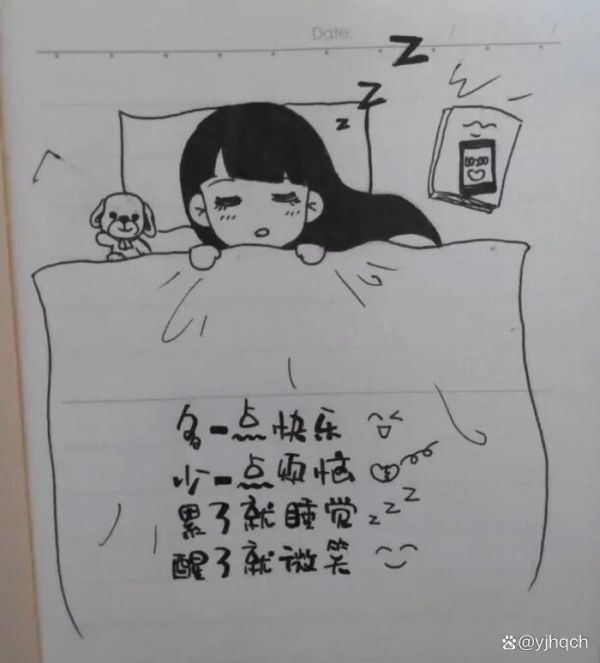 Date:
z
z
z
00:00
多一点快乐
少一点烦恼
累了就睡觉 zzz
醒了就微笑
@yjhqch